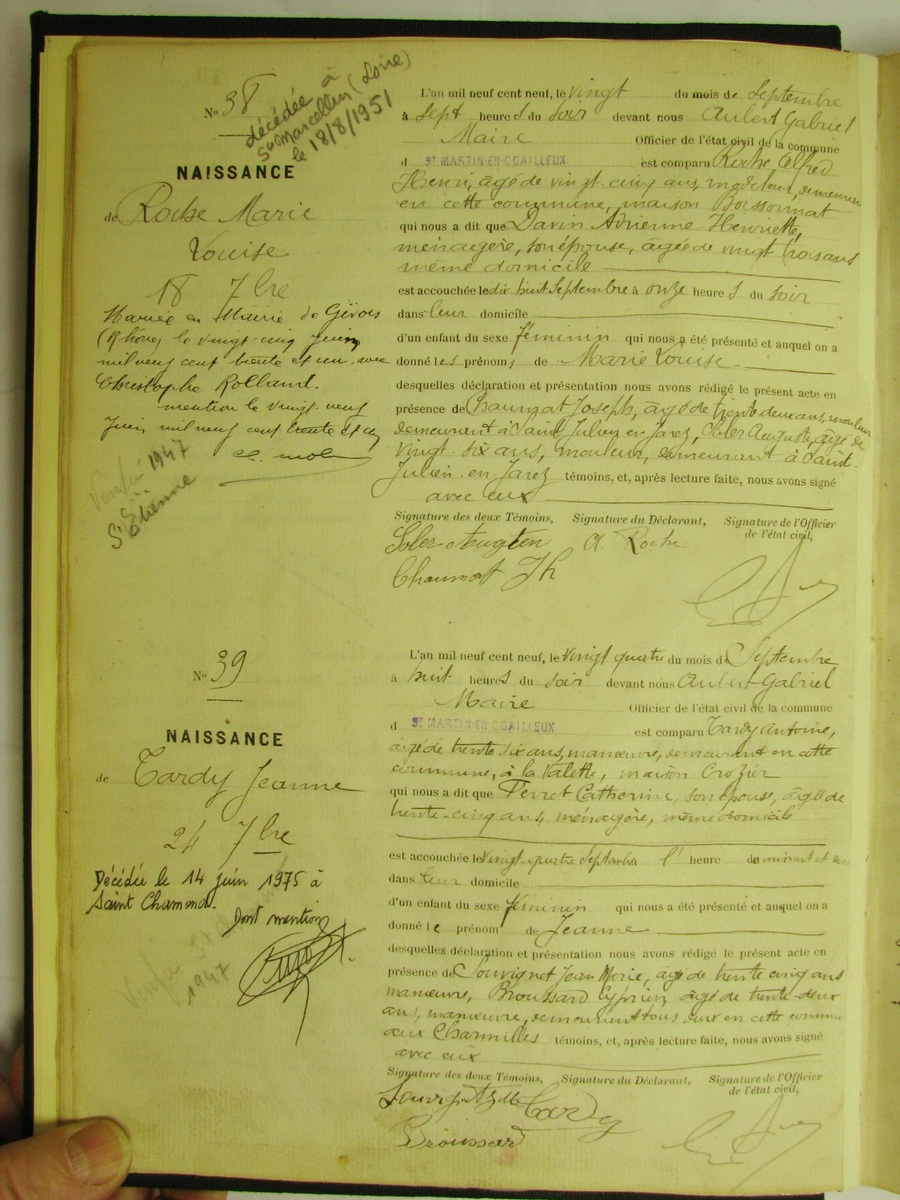 N° 38
décédée à
St Marcellin (Loire)
le 18/8/1951
NAISSANCE
de Roche Marie
Louise
18 7bre
Mariée en Mairie de Givors
(Rhône) le vingt-cinq juin
mil neuf cent trente et un, avec
Christophe Rolland.
mention le vingt-neuf
Juin mil neuf cent trente et un
Vérifié 1947
St Etienne
L'an mil neuf cent neuf, le vingt du mois de Septembre
à sept heures du soir devant nous Aubert Gabriel
Maire Officier de l'état civil de la commune
d ST MARTIN-EN-COAILLEUX est comparu Roche Alfred
Henri, âgé de vingt-cinq ans, modeleur, demeurant
en cette commune, maison Boissonnat
qui nous a dit que Davin Avrienne Henriette,
ménagère, son épouse, âgée de vingt trois ans
même domicile
est accouchée le dix huit Septembre à onze heures du soir
dans leur domicile
d'un enfant du sexe féminin qui nous a été présenté et auquel on a
donné les prénoms de Marie Louise.
desquelles déclaration et présentation nous avons rédigé le présent acte en
présence de Chaumat Joseph, âgé de trente deux ans, mouleur
demeurant à Saint Julien en Jarez, Soler Auguste, âgé de
vingt-six ans, mouleur, demeurant à Saint-
Julien-en-Jarez témoins, et, après lecture faite, nous avons signé
avec eux
Signature des deux Témoins, Signature du Déclarant, Signature de l'Officier
de l'état civil,
Soler A. Roche
Chaumat Jh
N° 39
NAISSANCE
de Tardy Jeanne
24 7bre
Décédée le 14 juin 1975 à
Saint Chamond.
Dont mention
1947
L'an mil neuf cent neuf, le vingt quatre du mois de Septembre
à huit heures du soir devant nous Aubert Gabriel
Maire Officier de l'état civil de la commune
d ST MARTIN-EN-COAILLEUX est comparu Tardy Antoine,
âgé de trente six ans, manœuvre, demeurant en cette
commune, à la Valette, maison Crozier
qui nous a dit que Perret Catherine, son épouse, âgée de
trente-cinq ans, ménagère, même domicile
est accouchée le vingt-quatre Septembre l' heure de minuit et
dans leur domicile
d'un enfant du sexe féminin qui nous a été présenté et auquel on a
donné le prénom de Jeanne
desquelles déclaration et présentation nous avons rédigé le présent acte en
présence de Souvignet Jean Marie, âgé de trente cinq ans
manœuvre, Broussard Cyprien âgé de trente-deux
ans, manœuvre, demeurant tous deux en cette commune
aux Charmilles témoins, et, après lecture faite, nous avons signé
avec eux
Signature des deux Témoins, Signature du Déclarant, Signature de l'Officier
de l'état civil,
Tardy
Broussard